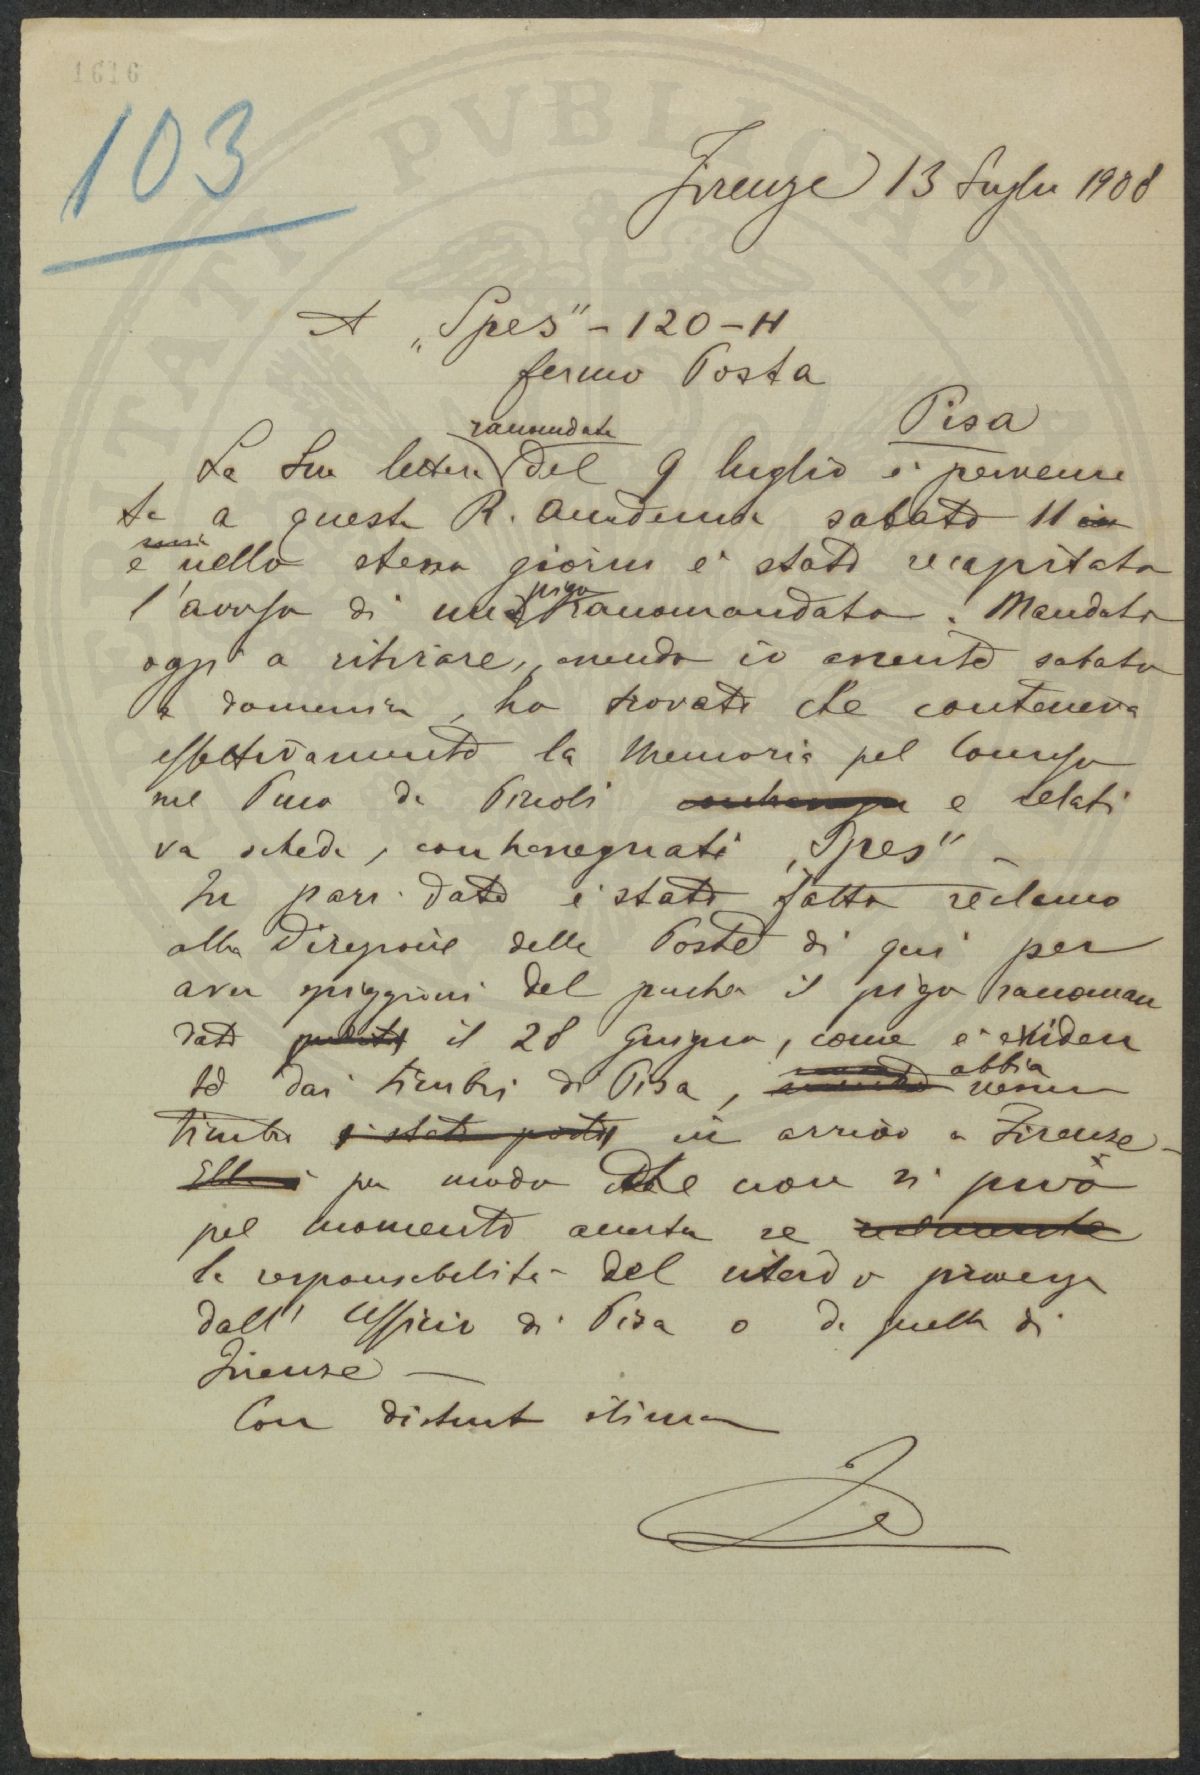 1616
103
Firenze 13 Luglio 1908
A „Spes" - 120 - H
fermo Posta
Pisa
raccomandata
La Sua lettera del 9 luglio è pervenu
ta a questa R. Accademia sabato 11
e nello stesso giorno è stato recapitato
l'avviso di un piego raccomandato. Mandato
oggi a ritirare, essendo io assente sabato
e domenica, ho trovato che conteneva
effettivamente la Memoria pel Concorso
nel Pino da Pinoli e relati
va scheda, contrassegnati „Spes" –
In pari data è stato fatto reclamo
alla Direzione delle Poste di qui per
aver spiegazioni del perché il piego raccoman
dato il 28 Giugno, come è eviden
te dai timbri di Pisa, abbia nessun
timbro in arrivo a Firenze –
per modo che non si può
pel momento accertare se
la responsabilità del ritardo provenga
dall'Ufficio di Pisa o da quello di
Firenze –
Con distinta stima